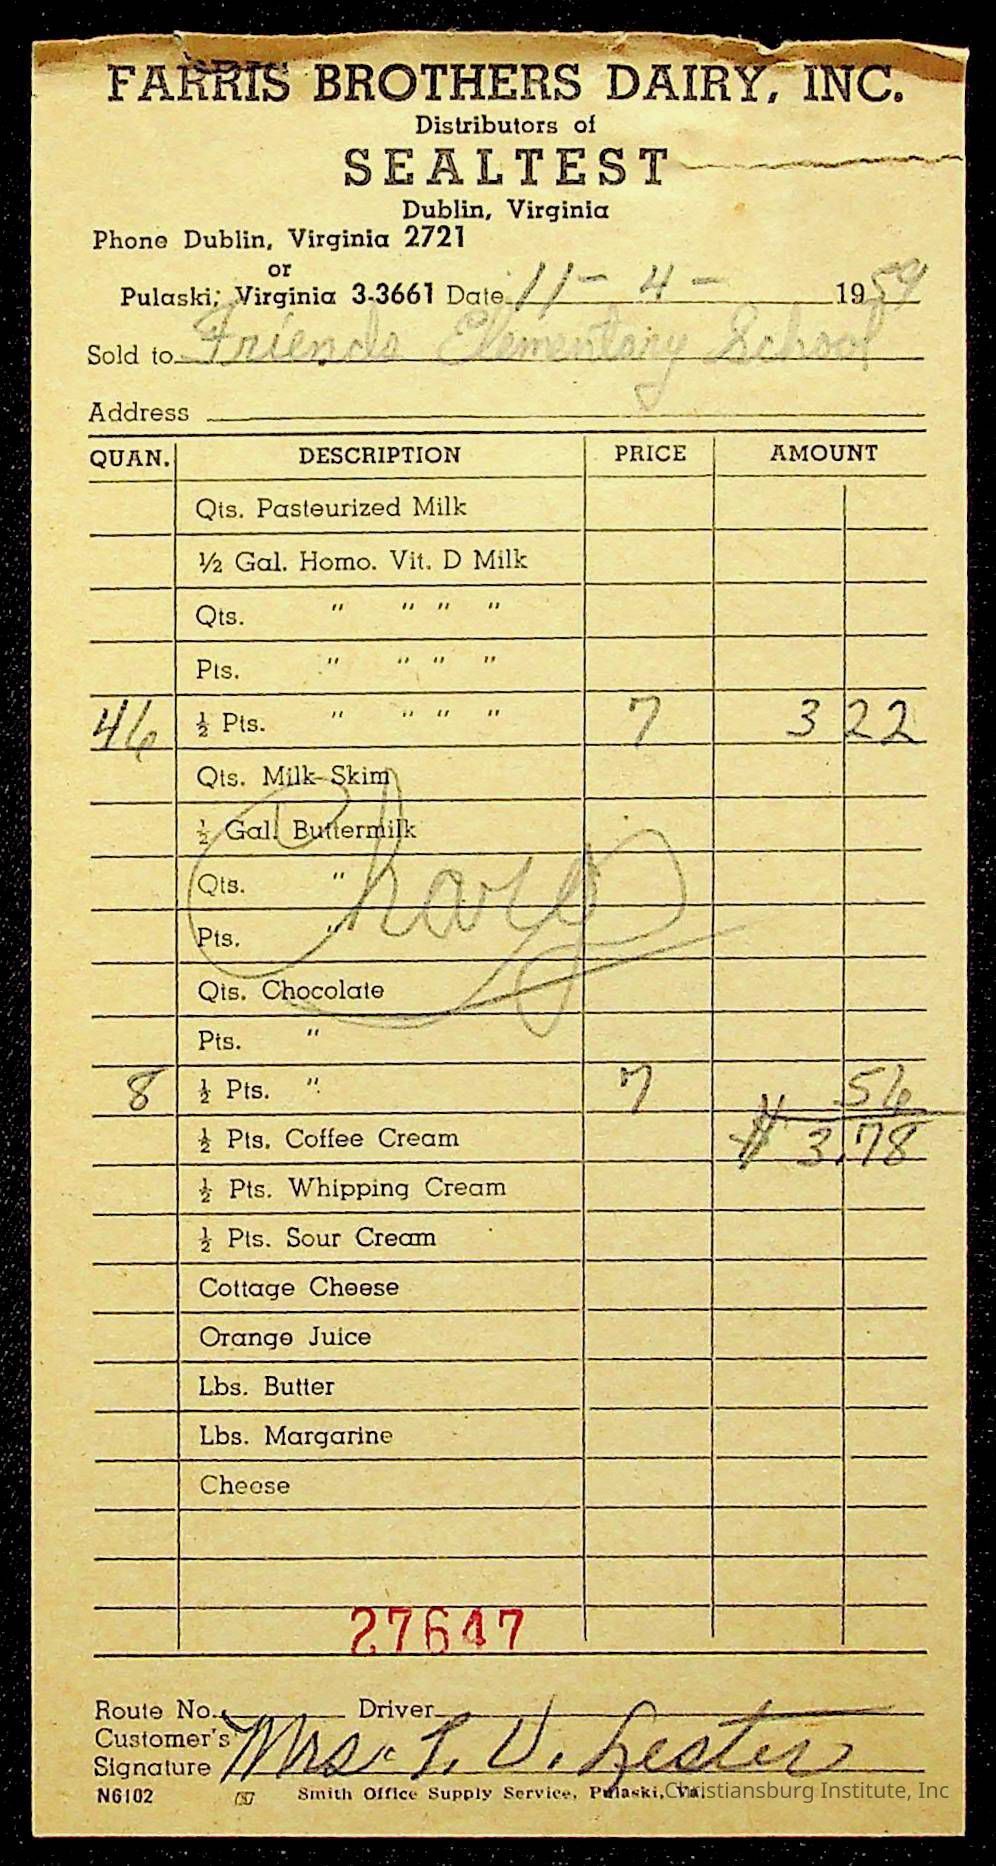 FARRIS BROTHERS DAIRY, INC.
Distributors of
SEALTEST
Dublin, Virginia
Phone Dublin, Virginia 2721
or
Pulaski, Virginia 3-3661 Date 11 - 4 - 1959
Sold to Friends Elementary School
Address
QUAN. DESCRIPTION PRICE AMOUNT
Qts. Pasteurized Milk
½ Gal. Homo. Vit. D Milk
Qts. " " " "
Pts. " " " "
46 ½ Pts. " " " " 7 3 22
Qts. Milk-Skim
½ Gal. Buttermilk
Qts. "
Charg
Pts. "
Qts. Chocolate
Pts. "
8 ½ Pts. " 7 56
½ Pts. Coffee Cream $ 3.78
½ Pts. Whipping Cream
½ Pts. Sour Cream
Cottage Cheese
Orange Juice
Lbs. Butter
Lbs. Margarine
Cheese
27647
Route No. Driver
Customer's
Signature Mrs. P. V. Lester
N6102 Smith Office Supply Service, Pulaski, Va.
Christiansburg Institute, Inc